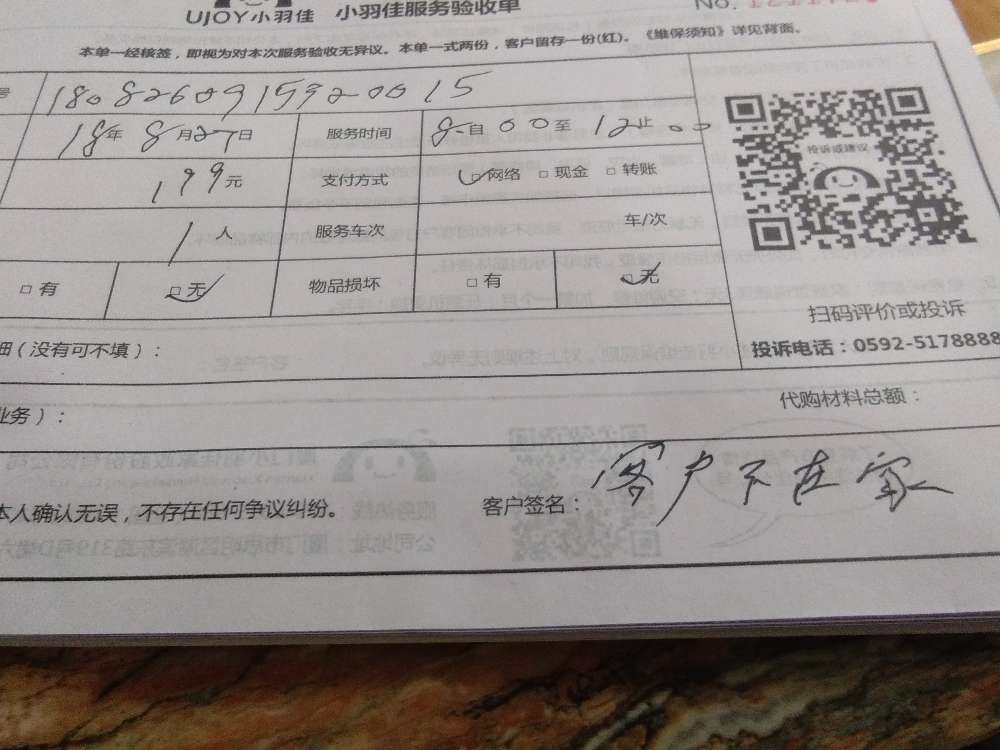 UJOY小羽佳 小羽佳服务验收单
No.
本单一经核签，即视为对本次服务验收无异议。本单一式两份，客户留存一份(红)。《维保须知》详见背面。
号 180826091592001 5
18年 8月27日 服务时间 8自00至12止00
199元 支付方式 网络 □现金 □转账
1人 服务车次 车/次
□有 无 物品损坏 □有 无
投诉或建议
扫码评价或投诉
投诉电话：0592-5178888
细（没有可不填）：
业务）： 代购材料总额：
本人确认无误，不存在任何争议纠纷。 客户签名：客户不在家